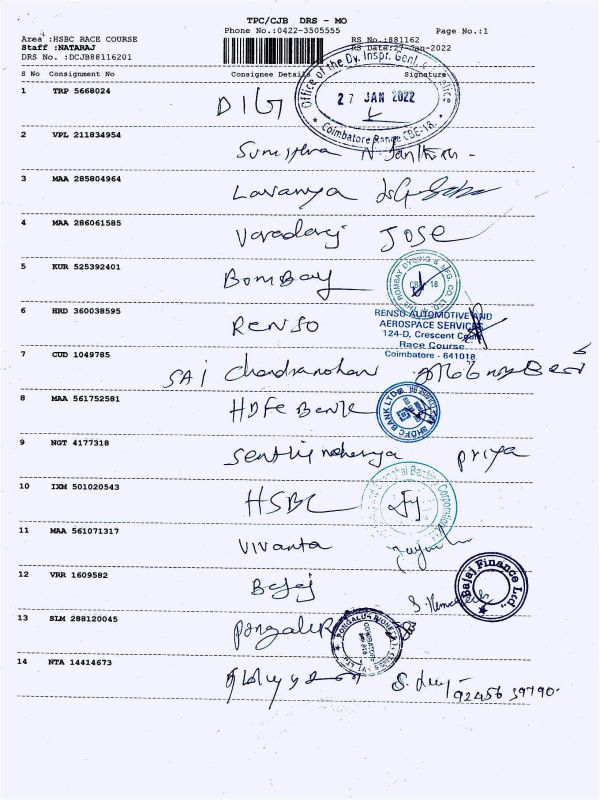 TPC/CJB DRS - MO
Phone No.:0422-3505555 Page No.:1
Area :HSBC RACE COURSE RS No.:881162
Staff :NATARAJ RS Date:27-Jan-2022
DRS No. :DCJB88116201
S No Consignment No Consignee Details Signature
Office of the Dy. Inspr. Genl. of Police
27 JAN 2022
Coimbatore Range CBE-18.
1 TRP 5668024 DIG
2 VPL 211834954
3 MAA 285804964 Lavanya
4 MAA 286061585 Varadaraj JOSE
5 KUR 525392401 Bombay
THE BOMBAY DYEING & MFG. CO. LTD.
6 HRD 360038595 RENSO
RENSO AUTOMOTIVE AND
AEROSPACE SERVICES
124-D, Crescent Court
Race Course
Coimbatore - 641018
7 CUD 1049785 SAI Chandramohan
8 MAA 561752581 HDFC Bank
HDFC BANK LTD
9 NGT 4177318 priya
10 IXM 501020543 HSBC
Shanghai Banking Corporation
11 MAA 561071317 Vivanta
12 VRR 1609582 Bajaj
"Bajaj Finance Ltd"
13 SLM 288120045
14 NTA 14414673 92456 39790